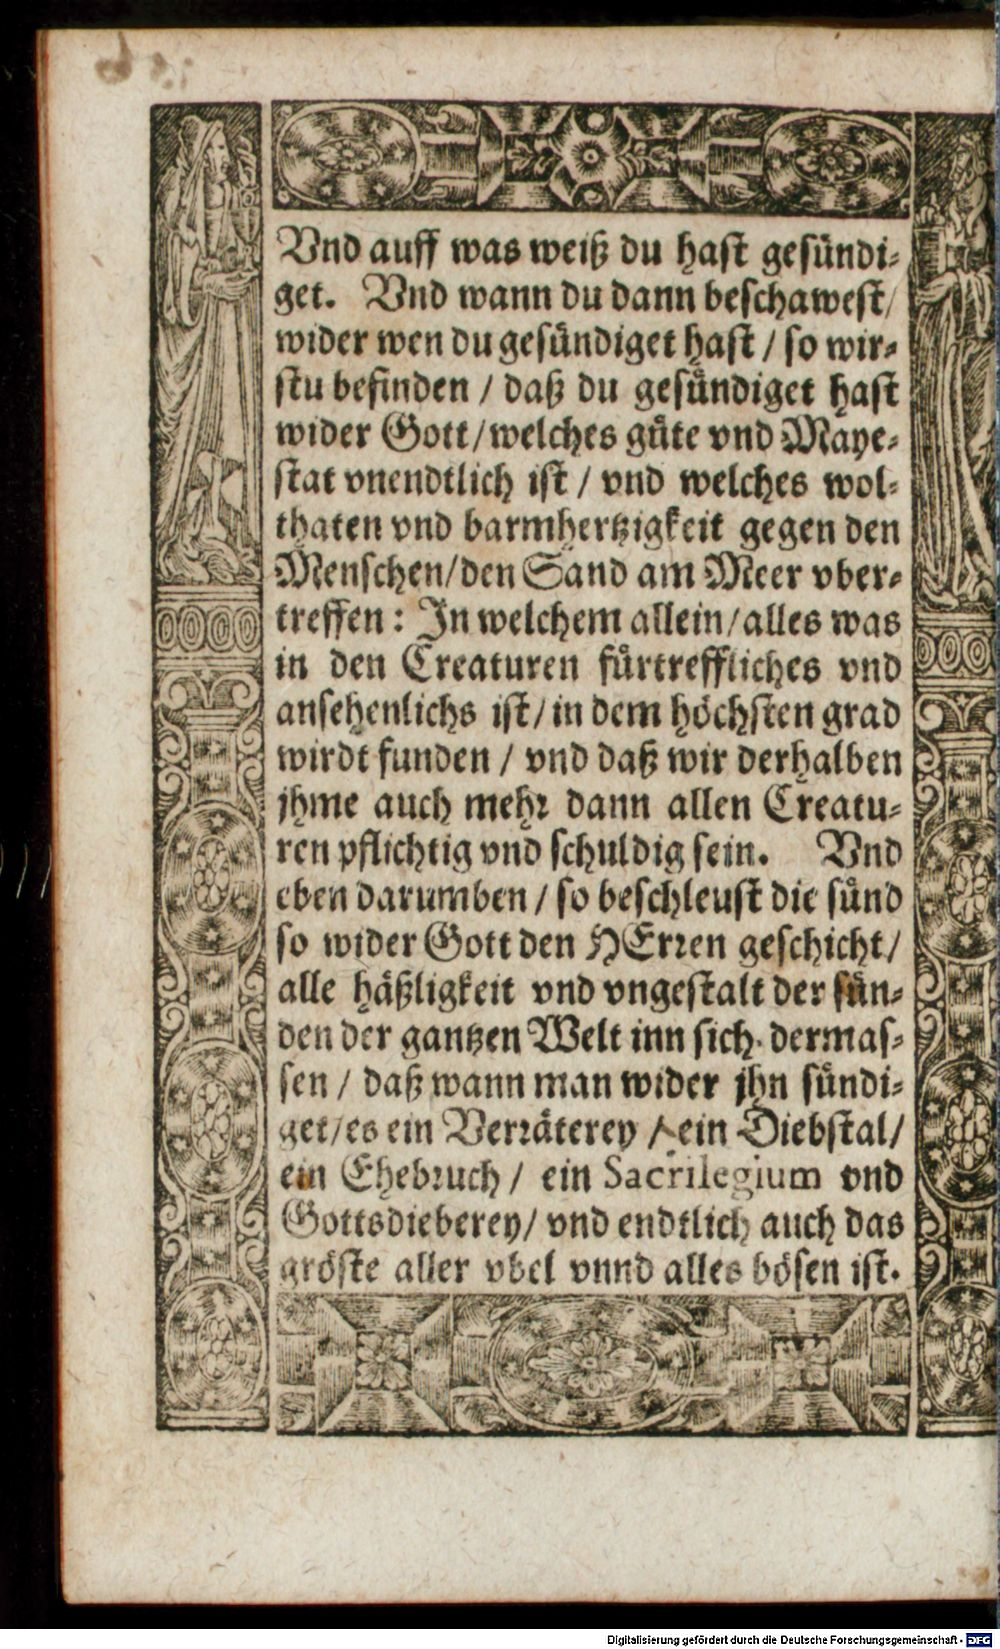 Vnd auff was weiß du hast gesündi-
get. Vnd wann du dann beschawest/
wider wen du gesündiget hast / so wir-
stu befinden / daß du gesündiget hast
wider Gott/welches güte vnd Maye-
stat vnendtlich ist / vnd welches wol-
thaten vnd barmhertzigkeit gegen den
Menschen/den Sand am Meer vber-
treffen: In welchem allein/alles was
in den Creaturen fürtreffliches vnd
ansehenlichs ist/in dem höchsten grad
wirdt funden / vnd daß wir derhalben
jhme auch mehr dann allen Creatu-
ren pflichtig vnd schuldig sein. Vnd
eben darumben / so beschleust die sünd
so wider Gott den HErren geschicht/
alle häßligkeit vnd vngestalt der sün-
den der gantzen Welt inn sich. dermas-
sen / daß wann man wider jhn sündi-
get/es ein Verräterey / ein Diebstal/
ein Ehebruch / ein Sacrilegium vnd
Gottsdieberey/ vnd endtlich auch das
gröste aller vbel vnnd alles bösen ist.
Digitalisierung gefördert durch die Deutsche Forschungsgemeinschaft - DFG